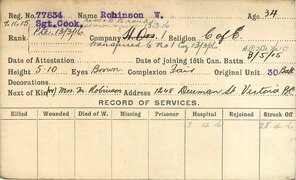 Reg. No. 77834 Name Robinson W. Age 34
7.11.15 Sgt. Cook, 8.3.16
Rank Pte. 13/3/16 Company Religion C of E.
Transferred to No 1 Coy 13/3/16
Date of Attestation Date of joining 15th Can. Battn 8/5/15
Height 5.10 Eyes Brown Complexion Fair Original Unit 30 Batt
Decorations
Next of Kin Mrs. M. Robinson Address 1248 Denman St. Victoria B.C.
RECORD OF SERVICES.
Killed Wounded Died of W. Missing Prisoner Hospital Rejoined Struck Off
3 4 16 28 4 16